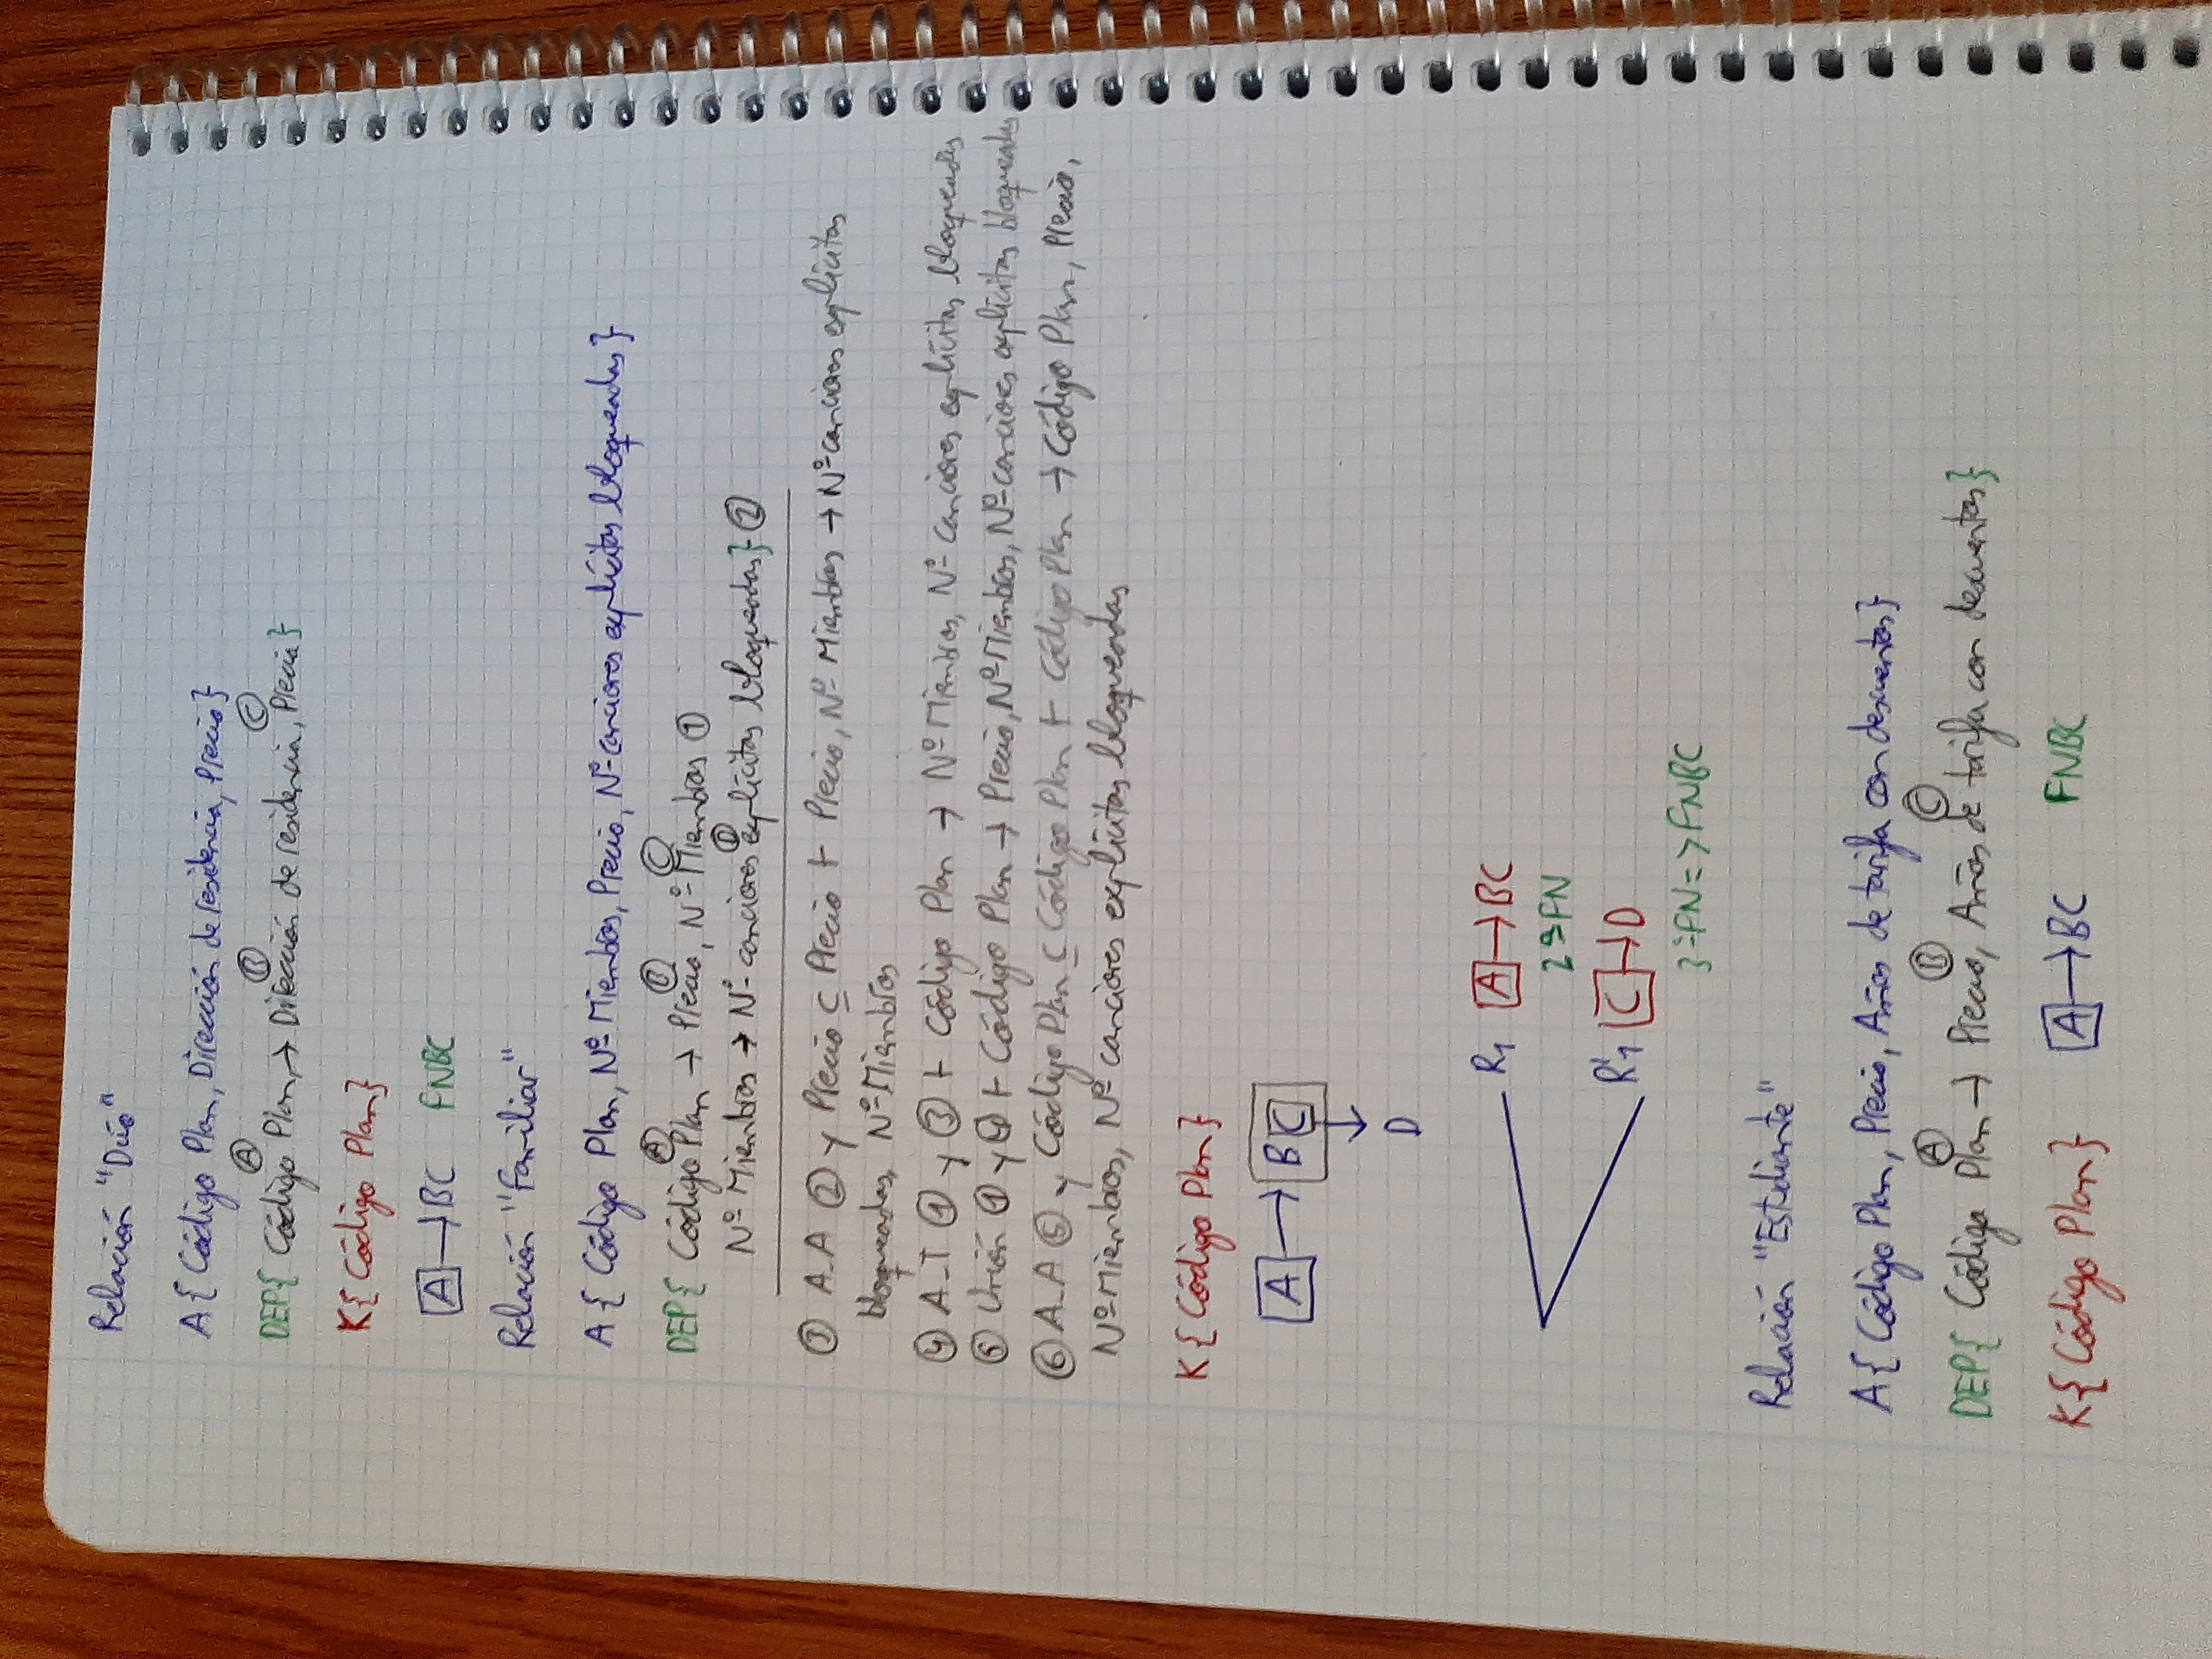 Relación "Dúo"
A{ Código Plan, Dirección de residencia, Precio}
A B C
DEP{ Código Plan → Dirección de residencia, Precio}
K{ Código Plan}
A → BC FNBC
Relación "Familiar"
A { Código Plan, Nº Miembros, Precio, Nº canciones explícitas bloqueadas}
A B C
DEP{ Código Plan → Precio, Nº Miembros ①
D
Nº Miembros → Nº canciones explícitas bloqueadas} ②
③ A-A ② y Precio ⊆ Precio ⊢ Precio, Nº Miembros → Nº canciones explícitas
bloqueadas, Nº Miembros
④ A-T ① y ③ ⊢ Código Plan → Nº Miembros, Nº canciones explícitas bloqueadas
⑤ Unión ① y ④ ⊢ Código Plan → Precio, Nº Miembros, Nº canciones explícitas bloqueadas
⑥ A-A ⑤ y Código Plan ⊆ Código Plan ⊢ Código Plan → Código Plan, Precio,
Nº Miembros, Nº canciones explícitas bloqueadas
K { Código Plan }
A → B C
D
R1 A → BC
2ªFN
R'1 C → D
3ªFN => FNBC
Relación "Estudiante"
A{ Código Plan, Precio, Años de tarifa con descuentos}
A B C
DEP{ Código Plan → Precio, Años de tarifa con descuentos}
K{ Código Plan} A → BC FNBC